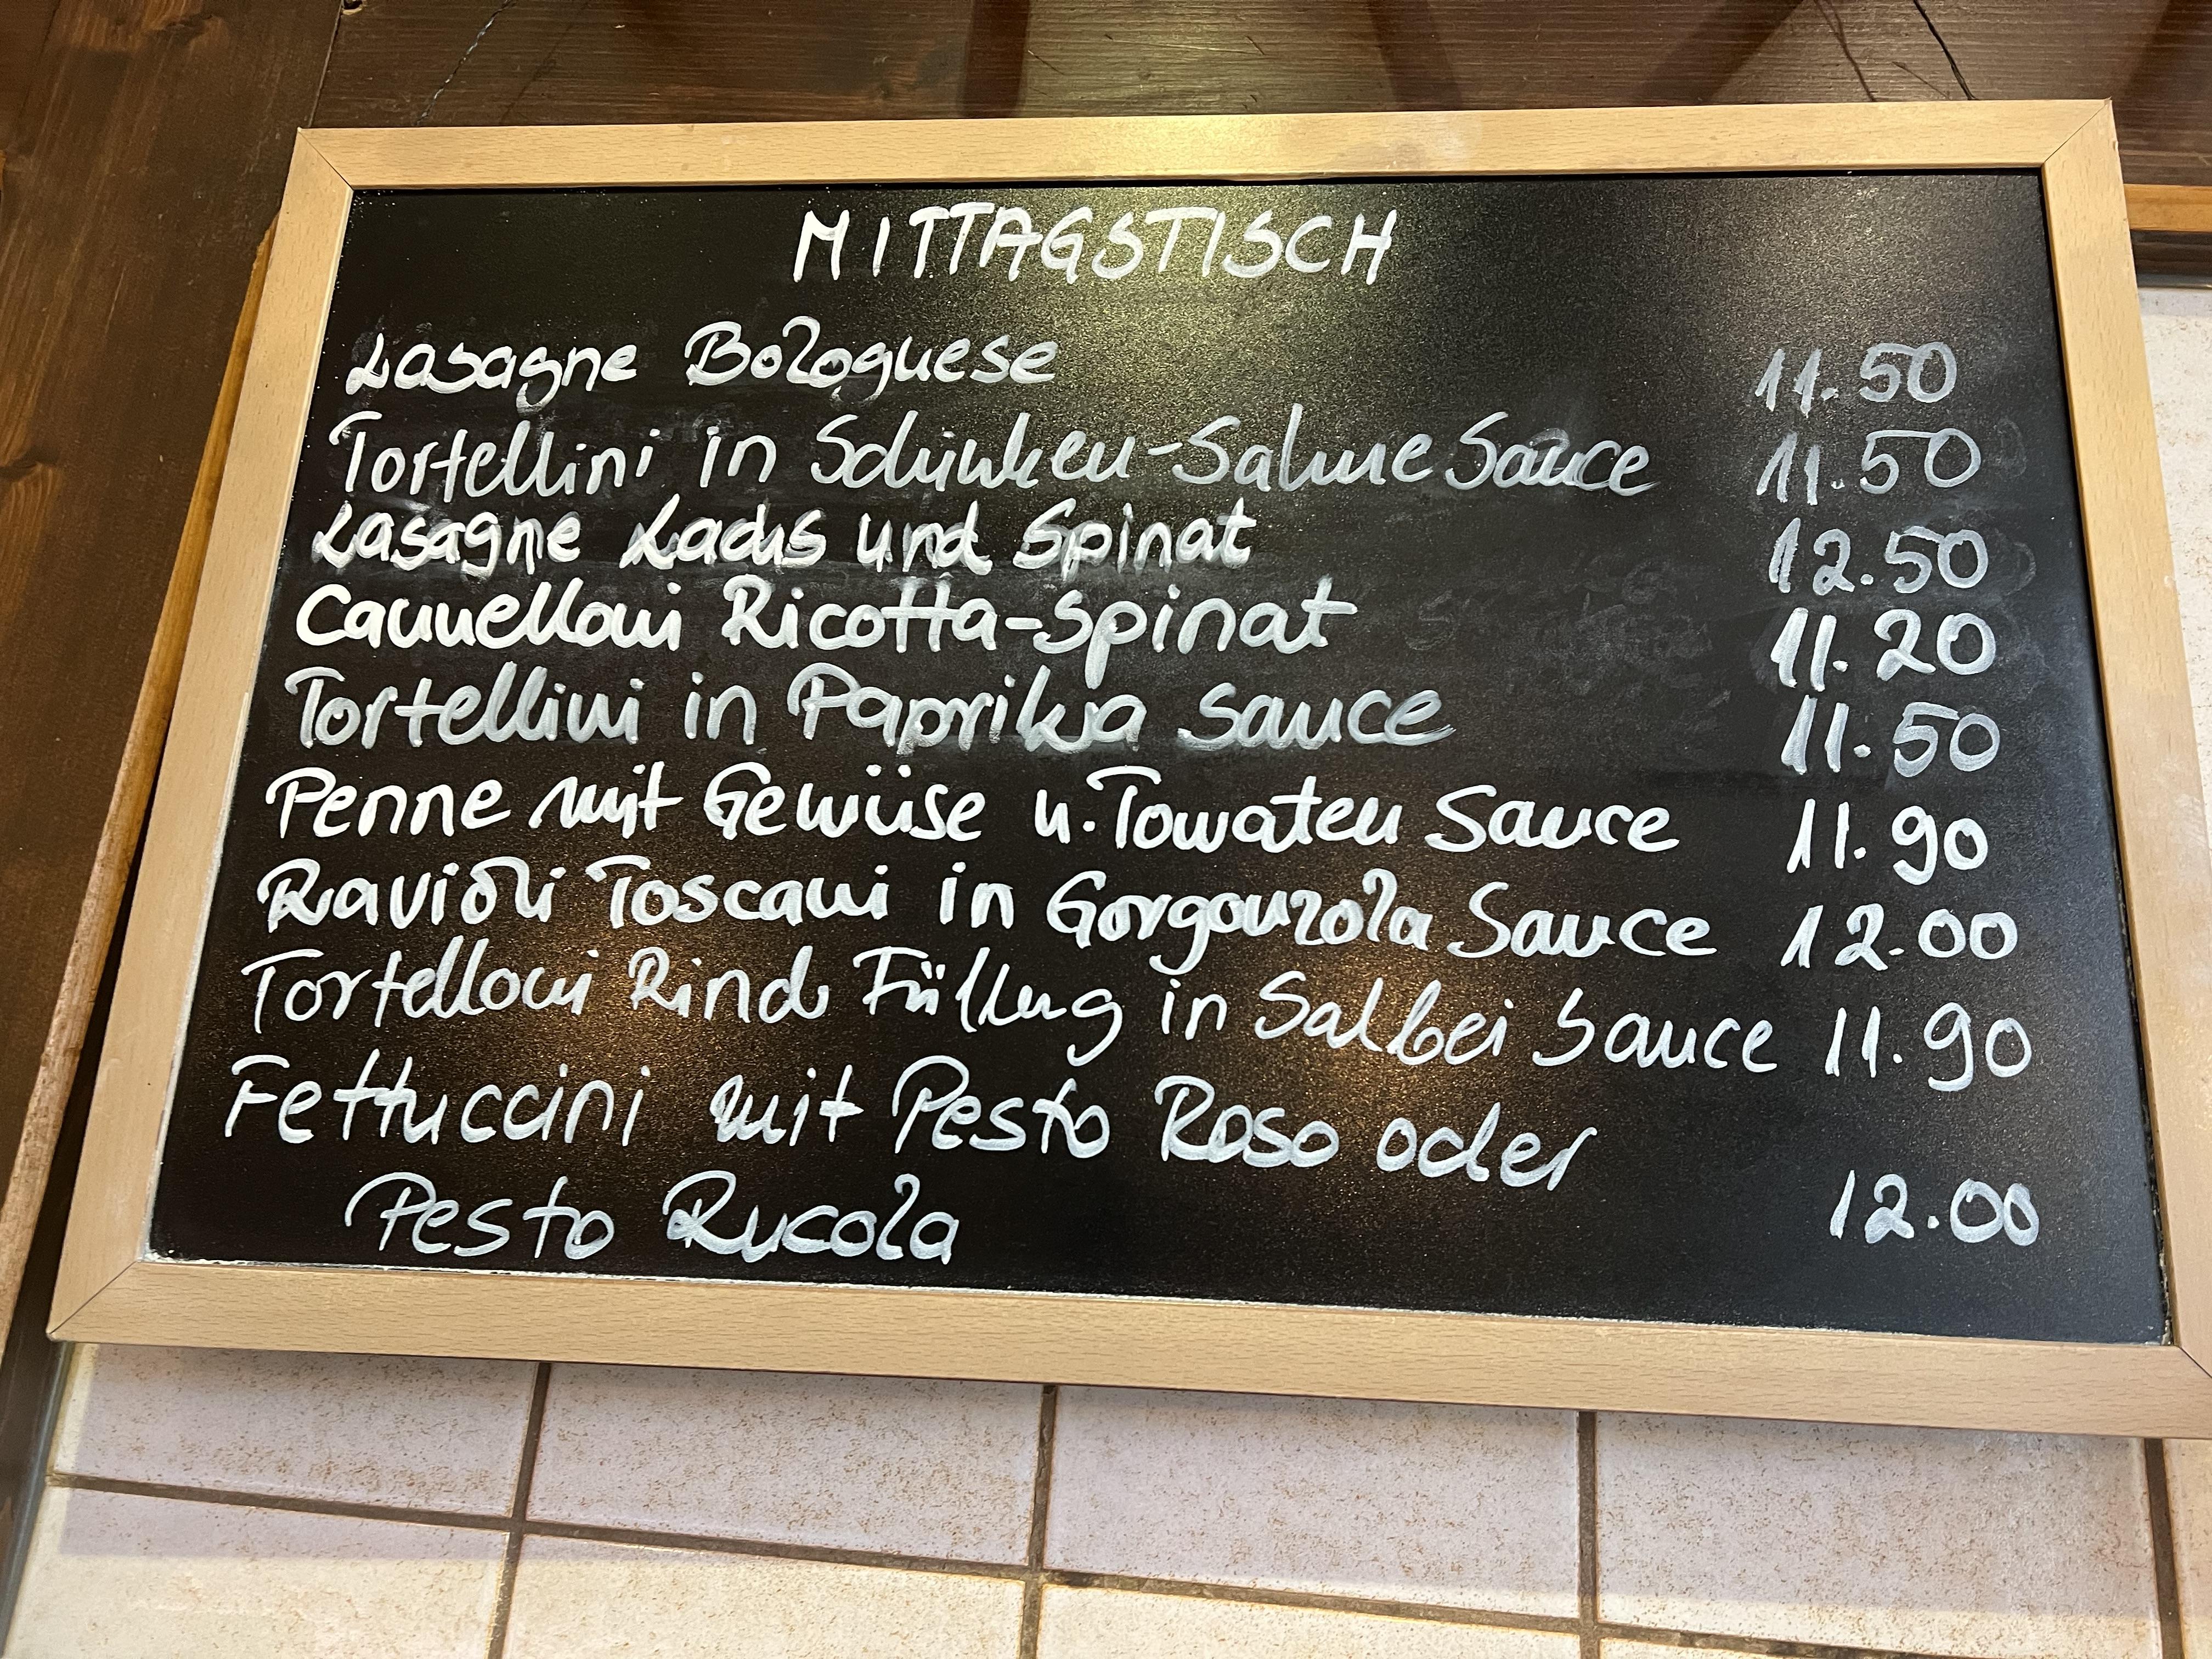 MITTAGSTISCH
Lasagne Bolognese 11.50
Tortellini in Schinken-Sahne Sauce 11.50
Lasagne Lachs und Spinat 12.50
Cannelloni Ricotta-Spinat 11.20
Tortellini in Paprika Sauce 11.50
Penne mit Gemüse u. Tomaten Sauce 11.90
Ravioli Toscani in Gorgonzola Sauce 12.00
Tortelloni Rind Füllung in Salbei Sauce 11.90
Fettuccini mit Pesto Roso oder
Pesto Rucola 12.00